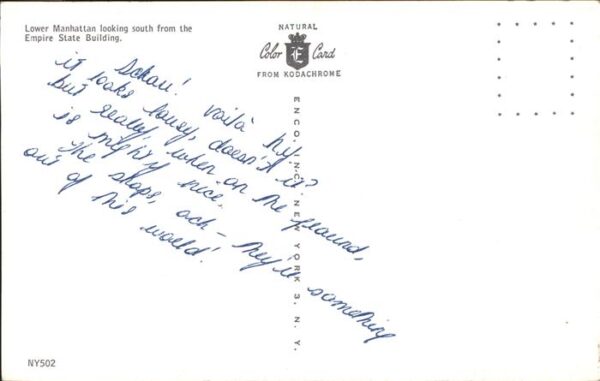 Lower Manhattan looking south from the
Empire State Building.
NATURAL
Color Card
E
FROM KODACHROME
ENCO, INC., NEW YORK 3, N. Y.
Schau! voilà
it looks lousy, doesn't it?
but really, when on the ground,
is mighty nice.
The shops, ach - they're something
out of this world!
NY502